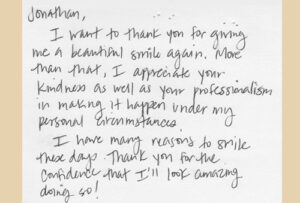 Jonathan,
I want to thank you for giving
me a beautiful smile again. More
than that, I appreciate your
kindness as well as your professionalism
in making it happen under my
personal circumstances.
I have many reasons to smile
these days. Thank you for the
confidence that I'll look amazing
doing so!